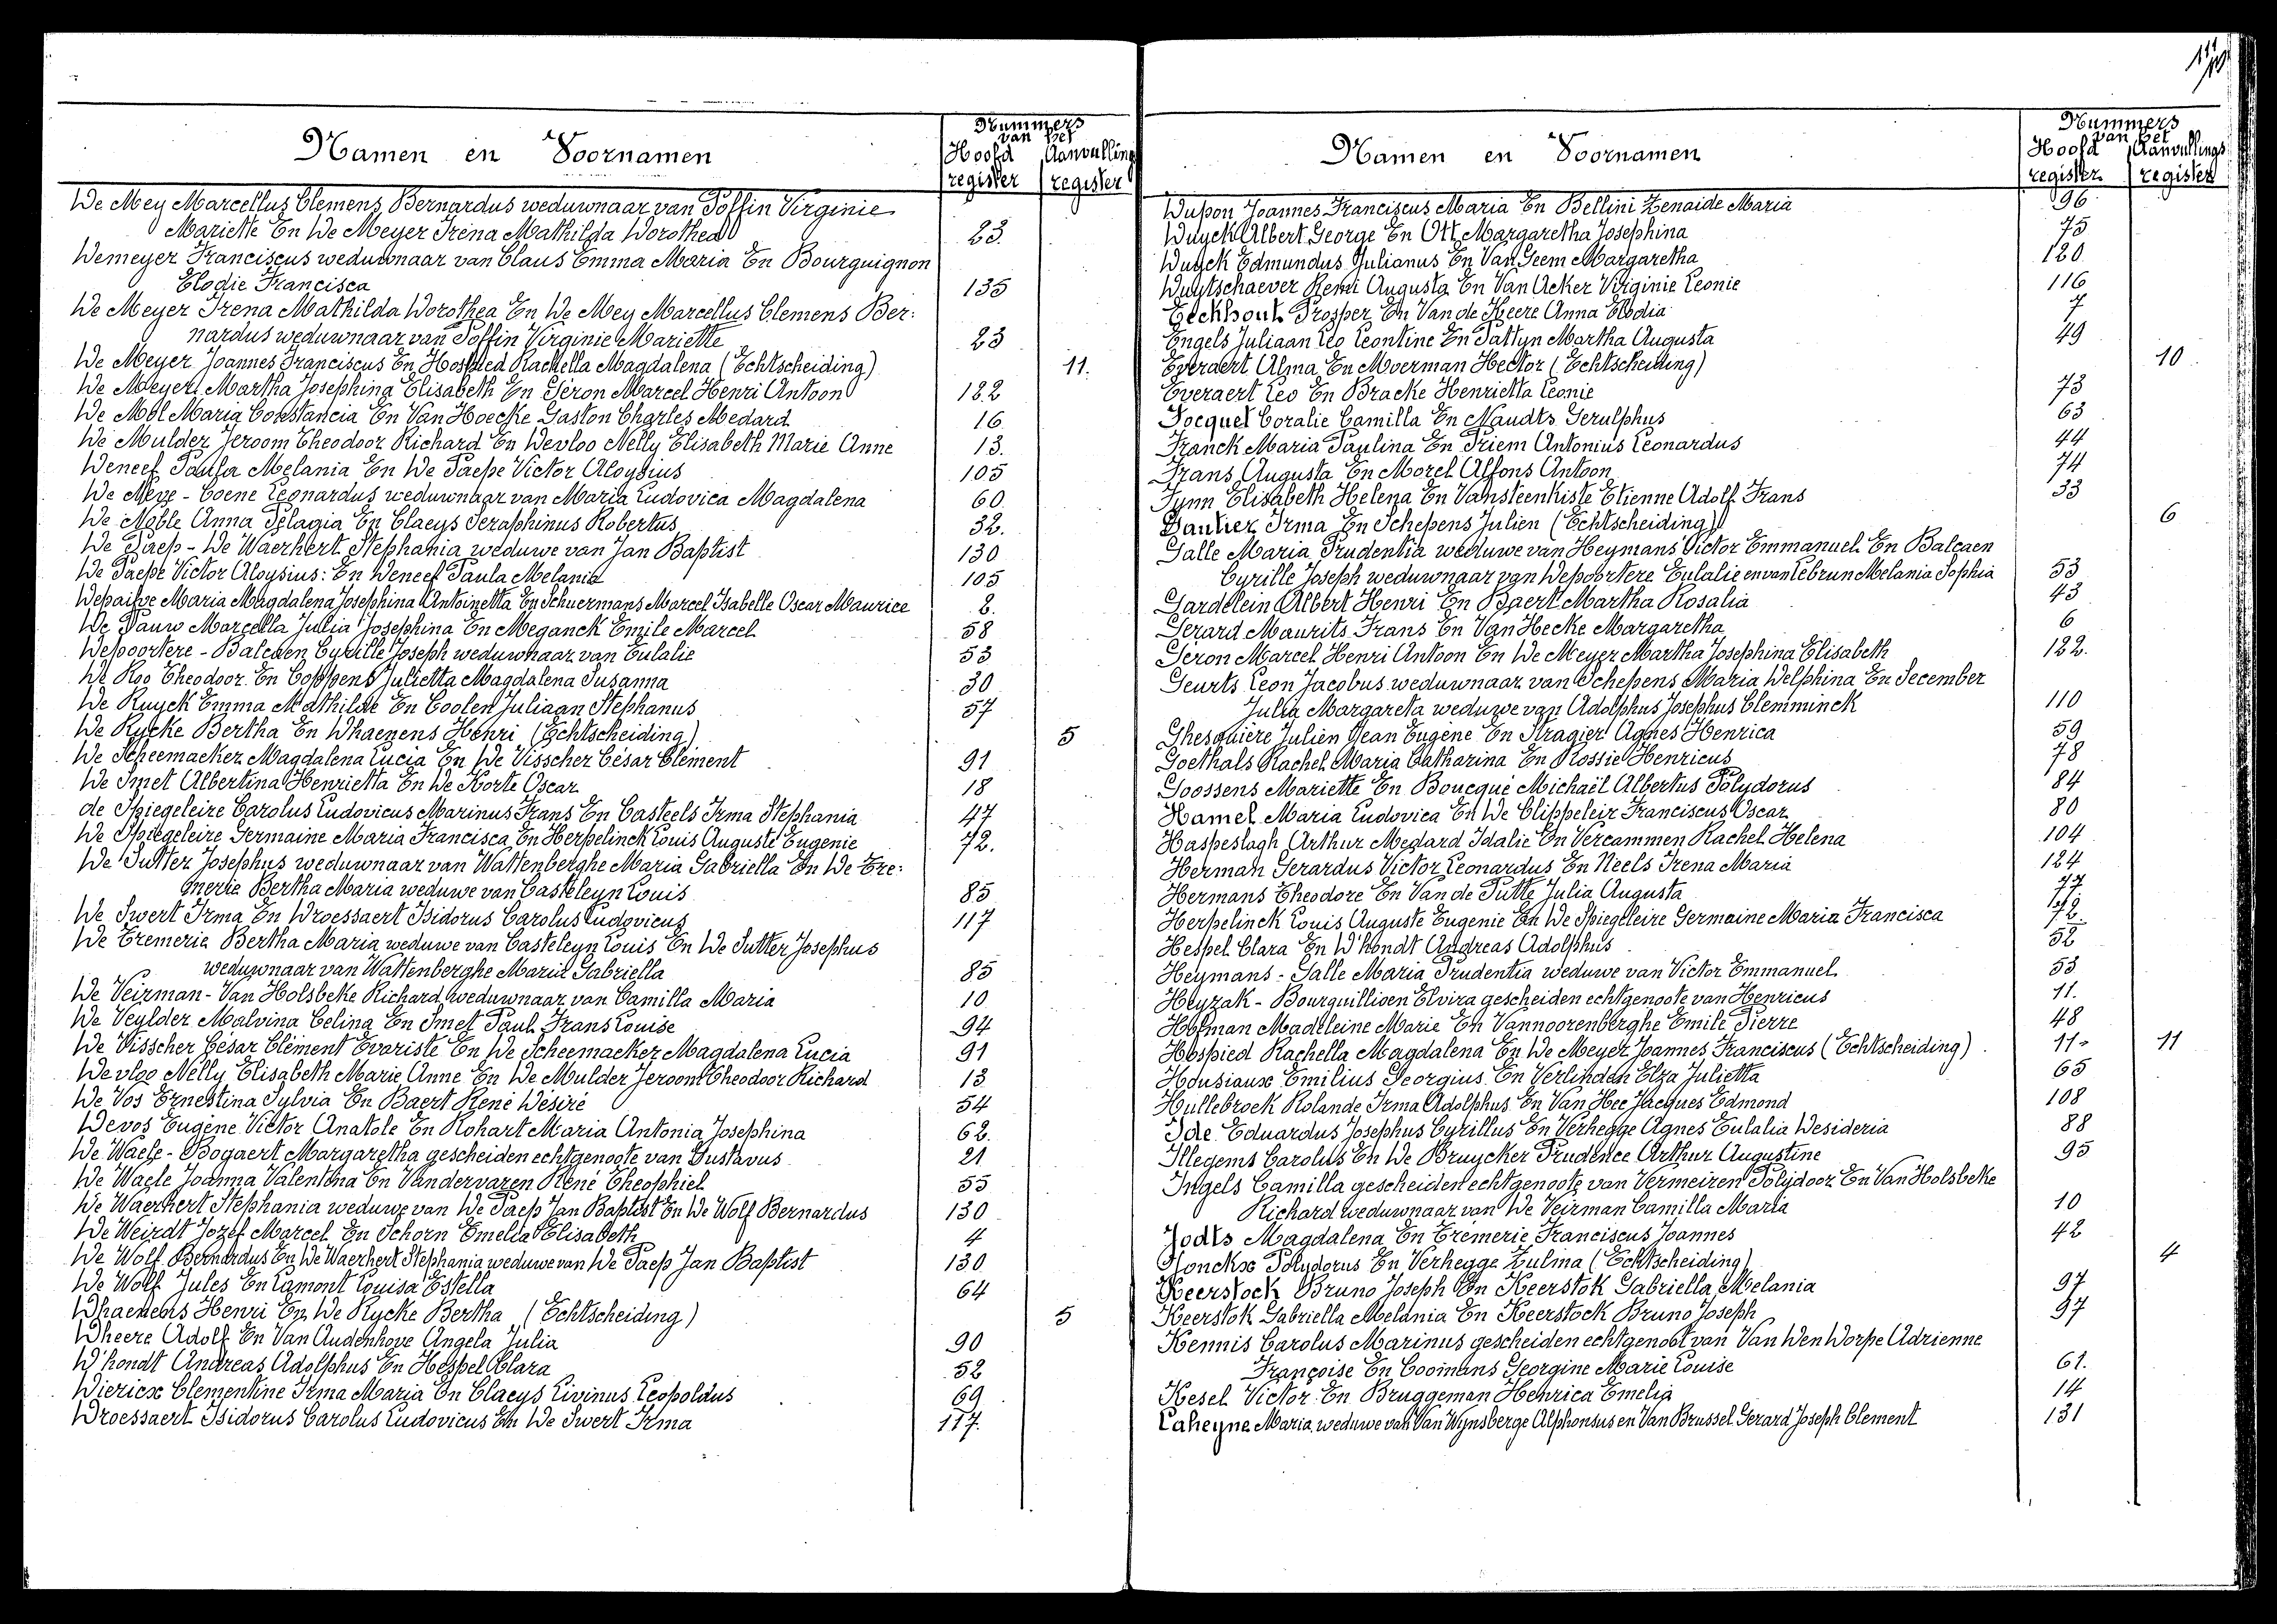 Namen en Voornamen
Nummers
van het
Hoofd Aanvullings
register register
De Mey Marcellus Clemens Bernardus weduwnaar van Poffin Virginie
Mariette En De Meyer Irena Mathilda Dorothea 23.
Demeyer Franciscus weduwnaar van Claus Emma Maria En Bourguignon
Elodie Francisca 135
De Meyer Irena Mathilda Dorothea En De Mey Marcellus Clemens Ber:
nardus weduwnaar van Poffin Virginie Mariette 23
De Meyer Joannes Franciscus En Hospied Rachella Magdalena (Echtscheiding) 11.
De Meyer Martha Josephina Elisabeth En Géron Marcel Henri Antoon 122
De Mol Maria Constancia En Van Hoecke Gaston Charles Medard 16
De Mulder Jeroom Theodoor Richard En Devloo Nelly Elisabeth Marie Anne 13.
Deneef Paula Melania En De Paepe Victor Aloysius 105
De Neve - Coene Leonardus weduwnaar van Maria Ludovica Magdalena 60
De Noble Anna Pelagia En Claeys Seraphinus Robertus 32.
De Paep - De Waerhert Stephania weduwe van Jan Baptist 130
De Paepe Victor Aloysius: En Deneef Paula Melania 105
Depaifve Maria Magdalena Josephina Antoinetta En Schuermans Marcel Isabelle Oscar Maurice 2.
De Pauw Marcella Julia Josephina En Meganck Emile Marcel 58
Depoortere - Balcaen Cyrille Joseph weduwnaar van Eulalie 53
De Roo Theodoor En Coppens Julietta Magdalena Susanna 30
De Ruyck Emma Mathilde En Coolen Juliaan Stephanus 57
De Rycke Bertha En Dhaenens Henri (Echtscheiding) 5
De Scheemaeker Magdalena Lucia En De Visscher César Clément 91
De Smet Albertina Henrietta En De Korte Oscar 18
de Spiegeleire Carolus Ludovicus Marinus Frans En Casteels Irma Stephania 47
De Spiegeleire Germaine Maria Francisca En Herpelinck Louis Auguste Eugenie 72.
De Sutter Josephus weduwnaar van Wattenberghe Maria Gabriella En De Tre:
merie Bertha Maria weduwe van Casteleyn Louis 85
De Swert Irma En Droessaert Isidorus Carolus Ludovicus 117
De Tremerie Bertha Maria weduwe van Casteleyn Louis En De Sutter Josephus
weduwnaar van Wattenberghe Maria Gabriella 85
De Veirman - Van Holsbeke Richard weduwnaar van Camilla Maria 10
De Veylder Malvina Celina En Smet Paul Frans Louise 94
De Visscher César Clément Evariste En De Scheemaeker Magdalena Lucia 91
Devloo Nelly Elisabeth Marie Anne En De Mulder Jeroom Theodoor Richard 13
De Vos Ernestina Sylvia En Baert René Désiré 54
Devos Eugène Victor Anatole En Rohart Maria Antonia Josephina 62.
De Waele - Bogaert Margaretha gescheiden echtgenoote van Gustavus 21
De Waele Joanna Valentina En Vandervaren René Theophiel 55
De Waerhert Stephania weduwe van De Paep Jan Baptist En De Wolf Bernardus 130
De Weirdt Jozef Marcel En Schorn Emelia Elisabeth 4
De Wolf Bernardus En De Waerhert Stephania weduwe van De Paep Jan Baptist 130
De Wolf Jules En Lamont Louisa Estella 64
Dhaenens Henri En De Rycke Bertha (Echtscheiding) 5
Dheere Adolf En Van Audenhove Angela Julia 90
D'hondt Andreas Adolphus En Hespel Clara 52
Diericx Clementine Irma Maria En Claeys Livinus Leopoldus 69
Droessaert Isidorus Carolus Ludovicus En De Swert Irma 117.
Namen en Voornamen
Nummers
van het
Hoofd Aanvullings
register register
Dupon Joannes Franciscus Maria En Bellini Zenaide Maria 96
Duyck Albert George En Ott Margaretha Josephina 75
Duyck Edmundus Julianus En Van Geem Margaretha 120
Duytschaever Remi Augusta En Van Acker Virginie Leonie 116
Eeckhout Prosper En Van de Keere Anna Elodia 7
Engels Juliaan Leo Leontine En Pattyn Martha Augusta 49
Everaert Alma En Moerman Hector (Echtscheiding) 10
Everaert Leo En Bracke Henrietta Leonie 73
Focquet Coralie Camilla En Naudts Gerulphus 63
Franck Maria Paulina En Priem Antonius Leonardus 44
Frans Augusta En Morel Alfons Antoon 74
Fynn Elisabeth Helena En Vansteenkiste Etienne Adolf Frans 33
Gautier Irma En Schepens Julien (Echtscheiding) 6
Galle Maria Prudentia weduwe van Heymans Victor Emmanuel En Balcaen
Cyrille Joseph weduwnaar van Depoortere Eulalie en van Lebrun Melania Sophia 53
Gardelein Albert Henri En Baert Martha Rosalia 43
Gerard Maurits Frans En Van Hecke Margaretha 6
Géron Marcel Henri Antoon En De Meyer Martha Josephina Elisabeth 122.
Geurts Leon Jacobus weduwnaar van Schepens Maria Delphina En December
Julia Margareta weduwe van Adolphus Josephus Clemminck 110
Ghesquière Julien Jean Eugène En Stragier Agnes Henrica 59
Goethals Rachel Maria Catharina En Rossie Henricus 78
Goossens Mariette En Boucqué Michaël Albertus Polydorus 84
Hamel Maria Ludovica En De Clippeleir Franciscus Oscar 80
Haspeslagh Arthur Medard Idalie En Vercammen Rachel Helena 104
Herman Gerardus Victor Leonardus En Neels Irena Maria 124
Hermans Theodore En Van de Putte Julia Augusta 77
Herpelinck Louis Auguste Eugenie En De Spiegeleire Germaine Maria Francisca 72.
Hespel Clara En D'hondt Andreas Adolphus 52
Heymans - Galle Maria Prudentia weduwe van Victor Emmanuel 53
Heyzak - Bourquillioen Elvira gescheiden echtgenoote van Henricus 11.
Hofman Madeleine Marie En Vannoorenberghe Emile Pierre 48
Hospied Rachella Magdalena En De Meyer Joannes Franciscus (Echtscheiding) 11 11
Housiaux Emilius Georgius En Verlinden Elza Julietta 65
Hullebroeck Rolande Irma Adolphus En Van Hee Jacques Edmond 108
Ide Eduardus Josephus Cyrillus En Verhegge Agnes Eulalia Desideria 88
Illegems Carolus En De Bruycker Prudence Arthur Augustine 95
Ingels Camilla gescheiden echtgenoote van Vermeiren Polydoor En Van Holsbeke
Richard weduwnaar van De Veirman Camilla Maria 10
Jodts Magdalena En Trémerie Franciscus Joannes 42
Jonckx Polydorus En Verhegge Zulma (Echtscheiding) 4
Keerstock Bruno Joseph En Keerstok Gabriella Melania 97
Keerstok Gabriella Melania En Keerstock Bruno Joseph 97
Kennis Carolus Marinus gescheiden echtgenoot van Van Den Dorpe Adrienne
Françoise En Coomans Georgine Marie Louise 61.
Kesel Victor En Bruggeman Henrica Emelia 14
Laheyne Maria weduwe van Van Wynsberge Alphonsus en Van Brussel Gerard Joseph Clement 131